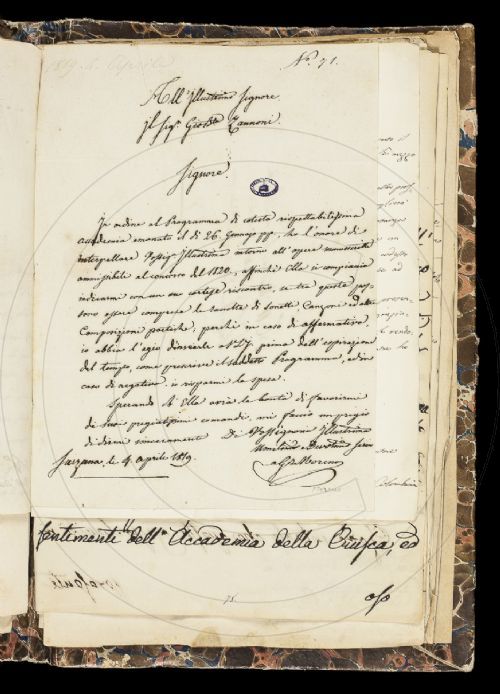 1819. 4. Aprile
N.° 71.
All'Illustrissimo Signore
Il Sig.r Gio: Bta Zannoni
Signore
In ordine al Programma di cotesta rispettabilissima
accademia emanato il dì 26. Gennajo pp., ho l'onore di
interpellare Vossig.a Illustrissima intorno all'opere manoscritte
ammissibile al concorso del 1820., affinchè Ella si compiaccia
indicarmi con un suo cortese riscontro, se tra queste pos-
sono essere comprese le raccolte di Sonetti, Canzoni ed altre
Composizioni poetiche, perchè in caso di affermativa,
io abbia l'agio d'inviarle prima dell'espirazione
del tempo, come prescrive il suddetto Programma, ed in
caso di negativa, io risparmi la spesa.
Sperando ch'Ella avrà la bontà di favorirmi
de' suoi pregiatissimi comandi, mi faccio un pregio
di dirmi sinceramente Di Vossignoria Illustrissima
Sarzana, li 4. Aprile 1819.
sentimenti dell'Accademia della Crusca, ed
71.